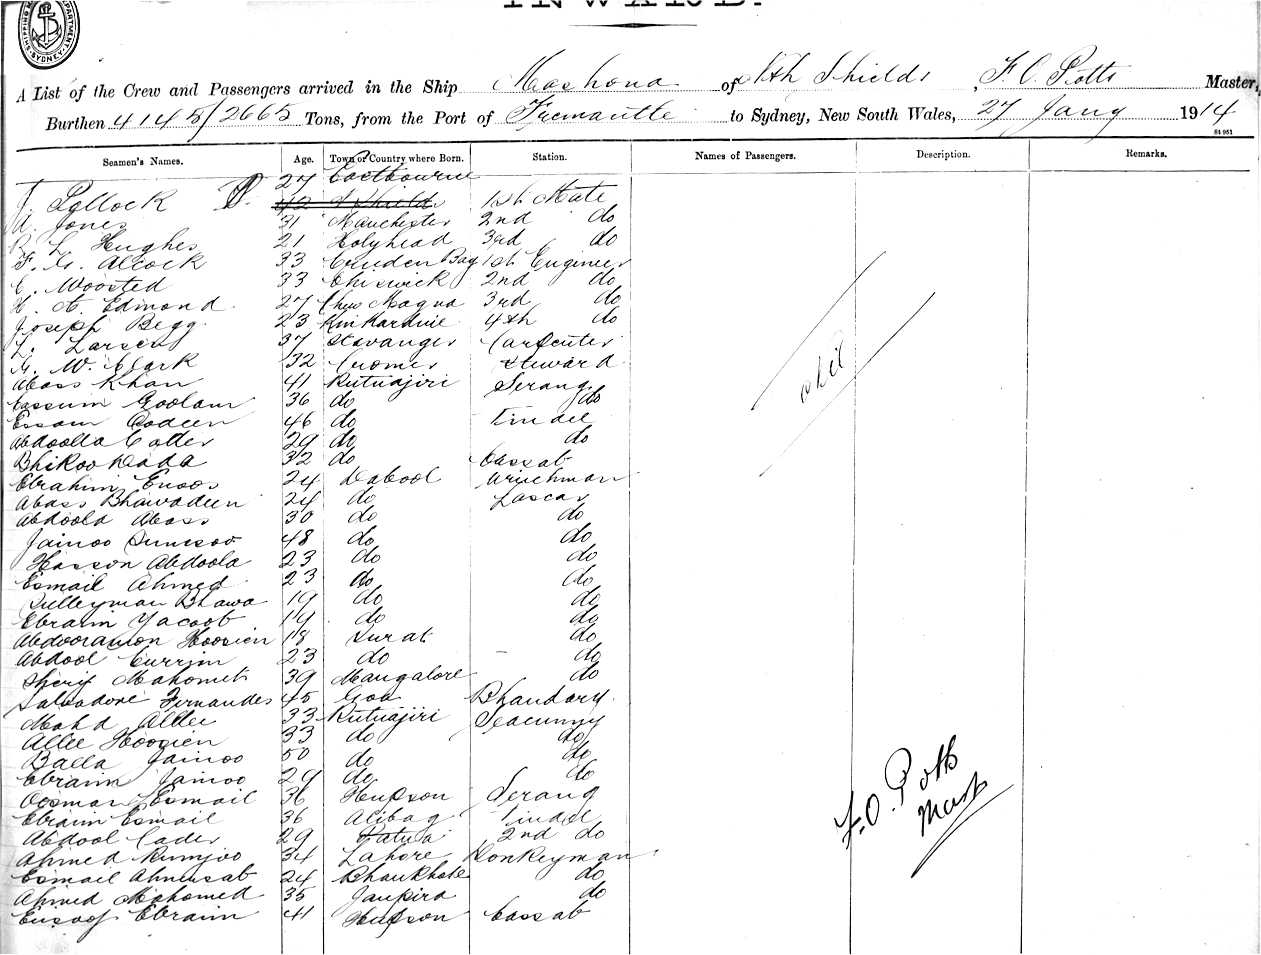 INWARD.
SYDNEY
A List of the Crew and Passengers arrived in the Ship Mashona of Nth Shields, F. O. Potts Master,
Burthen 4145/2665 Tons, from the Port of Fremantle to Sydney, New South Wales, 27 Jany 1914
Seamen's Names. Age. Town or Country where Born. Station. Names of Passengers. Description. Remarks.
27 Eastbourne
J. Pollock D. 42 S Shields 1st Mate
Jones 31 Manchester 2nd do
R L Hughes 21 Holyhead 3rd do
F. G. Alcock 33 Cruden Bay 1st Engineer
C. Woosted 33 Chiswick 2nd do
A. Edmond 27 Chew Magna 3rd do
Joseph Begg 23 Kinkardine 4th do
L. Larsen 37 Stavanger Carpenter
G. W. Clark 32 Cromer Steward
Abass Khan 41 Rutnajiri Serang
Cassum Goolam 36 do do
Essam Codeen 46 do Tindel
Abdoolla Catter 29 do do
Bhikoo Dada 32 do Cassab
Ebrahim Enoos 24 Dabool Winchman
Abass Bhawadeen 24 do Lascar
Abdoola Abass 30 do do
Jainoo 48 do do
Hasson Abdoola 23 do do
Esmail Ahmed 23 do do
Sulleyman Bhawa 19 do do
Ebraim Yacoob 19 do do
Abdooramon Hoosien 18 Surat do
Abdool Currim 23 do do
Sherif Mahomet 39 Mangalore do
Salvadore Fernandes 45 Goa Bhandary
Mahd Allee 33 Rutnajiri Seacunny
Allee Hoosien 33 do do
Balla Jainoo 50 do do
Ebraim Jainoo 29 do do
Oosman Esmail 36 Hufson Serang
Ebraim Esmail 36 Alibag Tindel
Abdool Cader 29 2nd do
Ahmed Rumjoo 34 Lahore Donkeyman
Esmail 24 do
Ahmed Mahomed 35 Janjira do
Eusoof Ebraim 41 Hufson Cassab
F. O. Potts
Mast